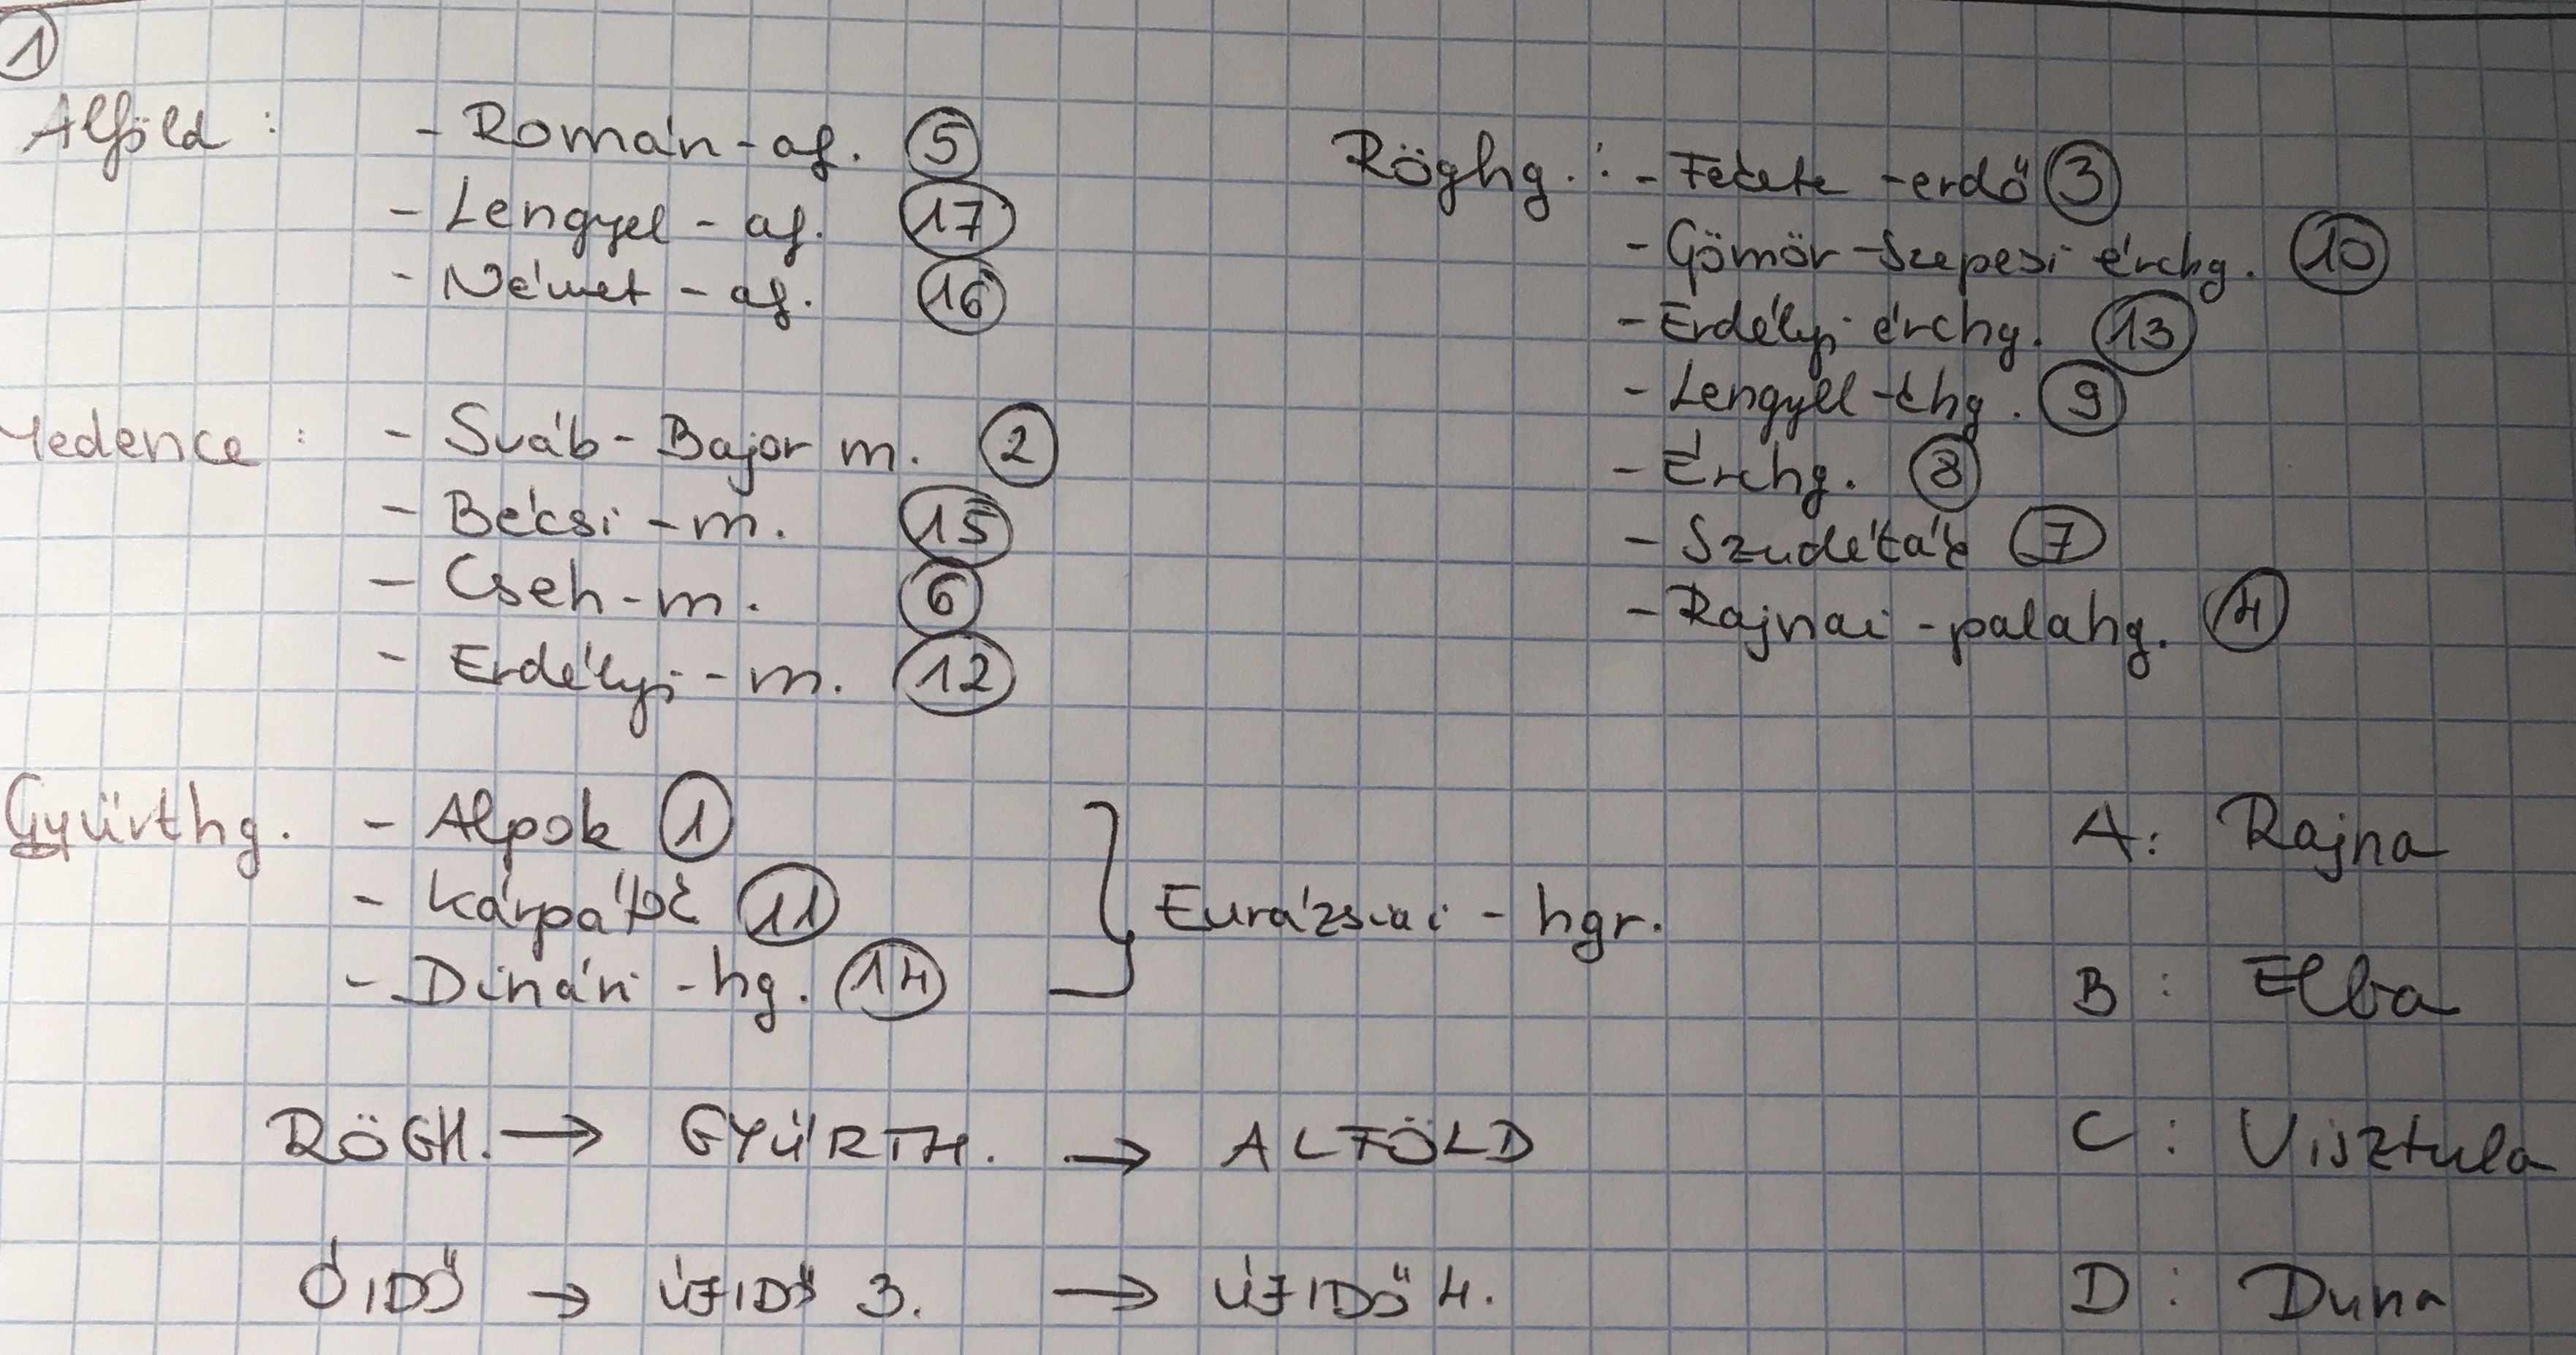 1
Alföld : - Román-af. 5
- Lengyel - af. 17
- Német - af. 16
Medence : - Sváb-Bajor m. 2
- Bécsi - m. 15
- Cseh-m. 6
- Erdélyi - m. 12
Gyűrthg. - Alpok 1
- Kárpátok 11
- Dinári - hg. 14
Eurázsiai - hgr.
Röghg. : - Fekete - erdő 3
- Gömör-Szepesi érchg. 10
- Erdélyi érchg. 13
- Lengyel-khg. 9
- Érchg. 8
- Szudéták 7
- Rajnai - palahg. 4
A: Rajna
B : Elba
C : Visztula
D : Duna
RÖGH. → GYŰRTH. → ALFÖLD
ÓIDŐ → ÚJIDŐ 3. → ÚJIDŐ 4.